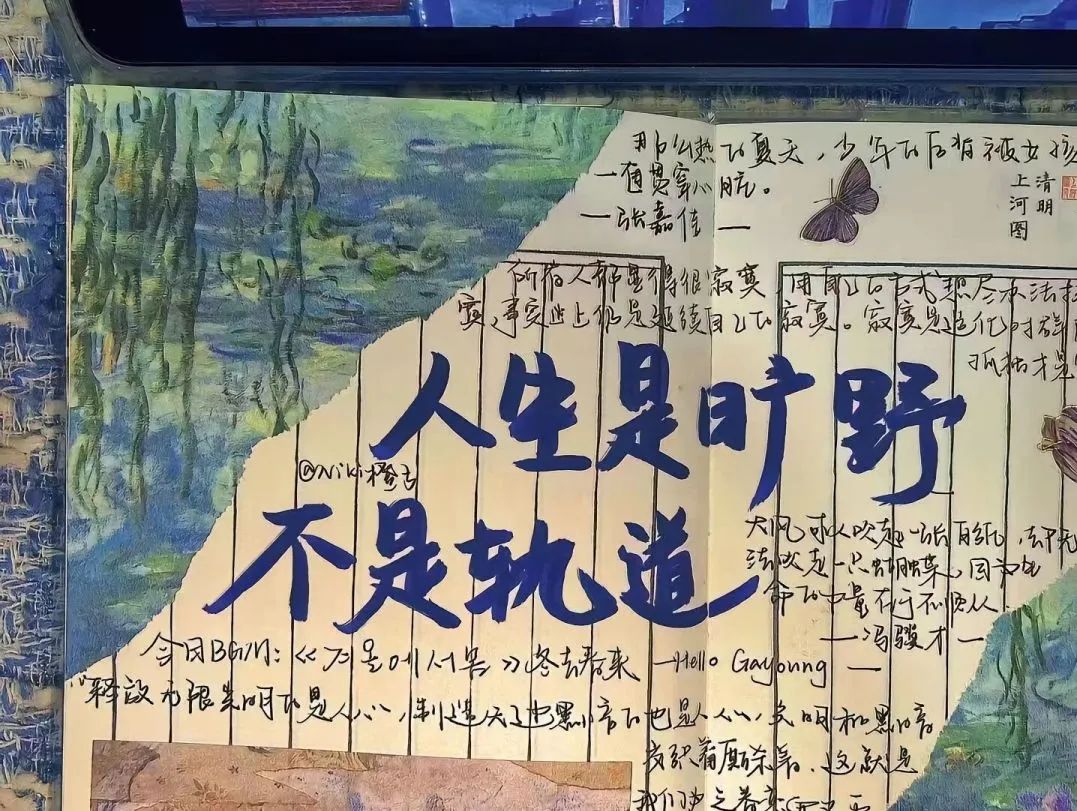 那么热的夏天，少年的后背被女孩
一通贯穿心脏。
—张嘉佳—
清明
上河图
所有人都显得很寂寞 用自己的方式想尽办法
寞，事实上仍是延续自己的寂寞。寂寞是造化对群
孤独才是
人生是旷野
@Niki橙子
不是轨道
大风可以吹起一张白纸，却无
法吹走一只蝴蝶，因为生
命的力量在于不顺从
—冯骥才—
今日BGM：《 》冬去春来 —Hello Gayoung—
“释放无限光明的是人心，制造无边黑暗的也是人心，光明和黑暗
交织着厮杀着，这就是
我们为之眷恋